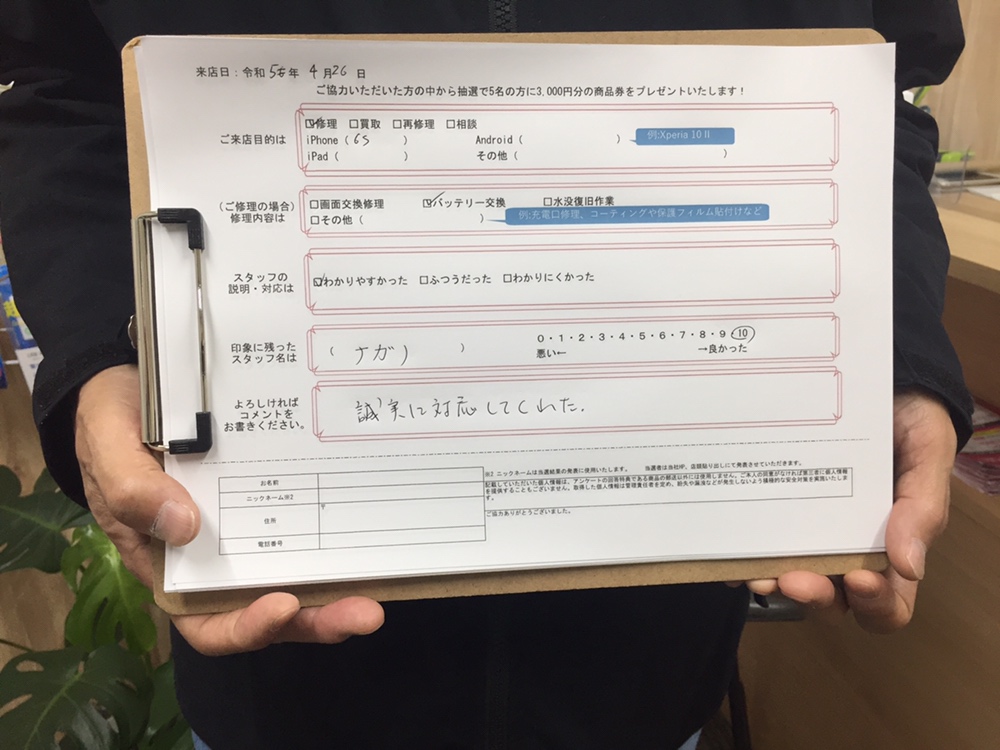 来店日：令和 5年 4月26日
ご協力いただいた方の中から抽選で5名の方に3,000円分の商品券をプレゼントいたします！
ご来店目的は
☑修理 □買取 □再修理 □相談
iPhone ( 6S ) Android ( ) 例:Xperia 10 II
iPad ( ) その他 ( )
(ご修理の場合)
修理内容は
□画面交換修理 ☑バッテリー交換 □水没復旧作業
□その他 ( ) 例:充電口修理、コーティングや保護フィルム貼付けなど
スタッフの
説明・対応は
☑わかりやすかった □ふつうだった □わかりにくかった
印象に残った
スタッフ名は
( ナガノ )
0・1・2・3・4・5・6・7・8・9・10
悪い← →良かった
よろしければ
コメントを
お書きください。
誠実に対応してくれた.
※2 ニックネームは当選結果の発表に使用いたします。 当選者は当社HP、店頭貼り出しにて発表させていただきます。
お名前
ニックネーム※2
住所
〒
電話番号
記載していただいた個人情報は、アンケートの回答特典である商品の郵送以外には使用しません。ご本人の同意がなければ第三者に個人情報
を提供することもございません。取得した個人情報は管理責任者を定め、紛失や漏洩などが発生しないよう積極的な安全対策を実施いたしま
す。
ご協力ありがとうございました。